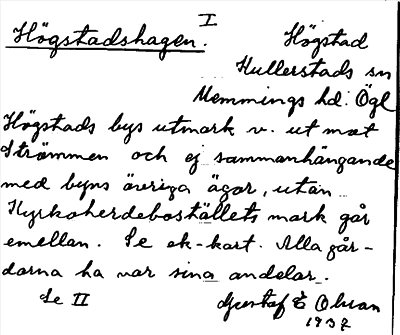 I
Högstadshagen. Högstad
Kullerstads sn
Memmings hd. Ögl
Högstads bys utmark v. ut mot
Strömmen och ej sammanhängande
med byns övriga ägor, utan
Kyrkoherdeboställets mark går
emellan. Se ek-kart. Alla går-
darna ha var sina andelar.
Se II Gustaf E Olsson
1937